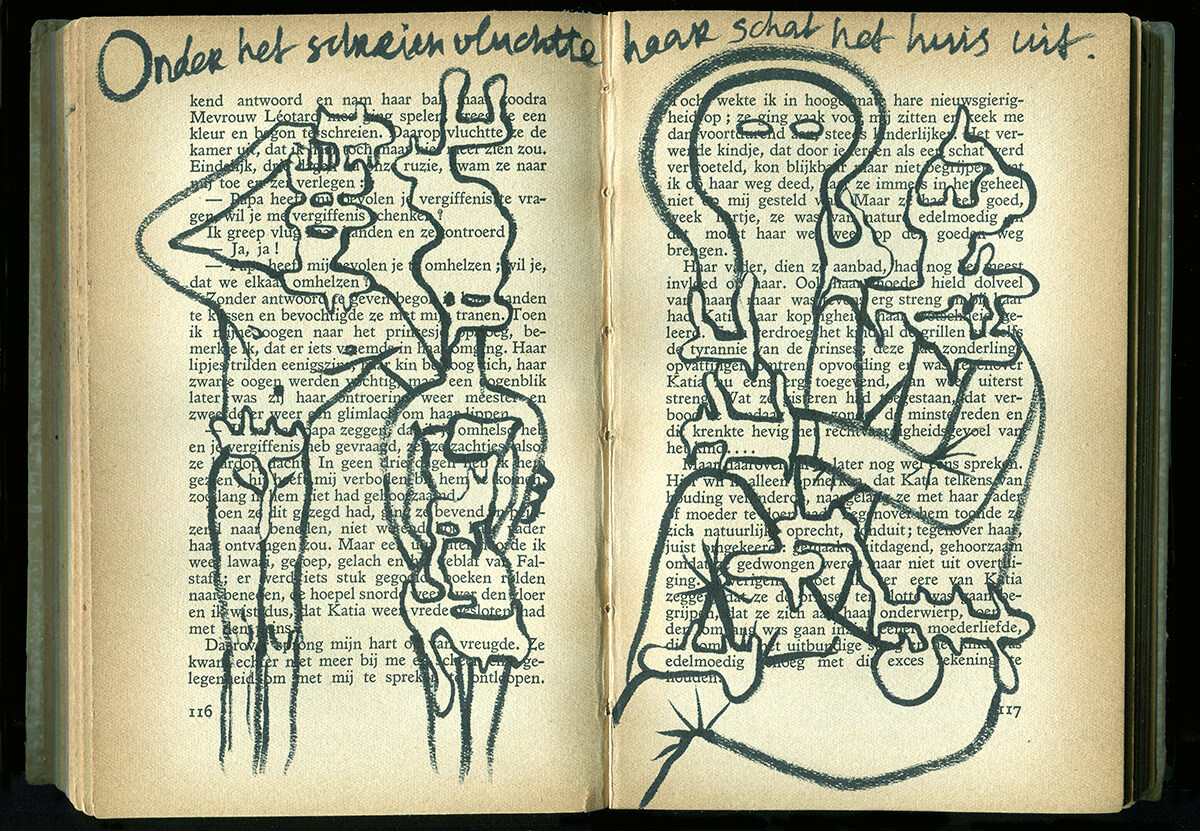 Onder het schreien vluchtte haar schat het huis uit.
kend antwoord en nam haar bal
Mevrouw Léotard ging spelen een
kleur en begon te schreien. Daarop vluchtte ze de
kamer uit, dat ik toch maar niet meer zien zou.
Eindelijk, onze ruzie, kwam ze naar
mij toe en zei verlegen :
— Papa heeft mij bevolen je vergiffenis te vra-
gen, wil je me vergiffenis schenken ?
Ik greep handen en zei ontroerd
— Ja, ja !
— Papa heeft mij bevolen je te omhelzen ; wil je,
dat we elkaar omhelzen ?
Zonder antwoord te geven begon ik handen
te kussen en bevochtigde ze met mijn tranen. Toen
ik mijne oogen naar het prinsesje opsloeg, be-
merkte ik, dat er iets vreemds in haar omging. Haar
lipjes trilden eenigszins, haar kin bewoog zich, haar
zwarte oogen werden vochtig, maar een oogenblik
later was zij haar ontroering weer meester en
zweefde er weer een glimlach om haar lippen.
papa zeggen, dat ik je omhelsd heb
en je vergiffenis heb gevraagd, zei ze zachtjes, alsof
ze hardop dacht. In geen drie dagen heb ik hem
gezien; hij heeft mij verboden bij hem te komen,
zoolang ik hem niet had gehoorzaamd.
Toen ze dit gezegd had, ging ze bevend en
zend naar beneden, niet wetend vader
haar ontvangen zou. Maar een uur later hoorde ik
weer lawaai, geroep, gelach en het geblaf van Fal-
staff; er werd iets stuk gegooid, boeken rolden
naar beneden, de hoepel snorde weer over den vloer
en ik wist dus, dat Katia weer vrede gesloten had
met den prins.
Daarop sprong mijn hart op van vreugde. Ze
kwam echter niet meer bij me en scheen elke ge-
legenheid om met mij te spreken te ontloopen.
116
Toch wekte ik in hooge mate hare nieuwsgierig-
heid op ; ze ging vaak voor mij zitten en keek me
dan voortdurend aan, steeds kinderlijker. Het ver-
wende kindje, dat door iedereen als een schat werd
vertroeteld, kon blijkbaar maar niet begrijpen, wat
ik op haar weg deed, daar ze immers in het geheel
niet op mij gesteld was. Maar ze had een goed,
week hartje, ze was van natuur edelmoedig en
dat moest haar wel weer op den goeden weg
brengen.
Haar vader, dien ze aanbad, had nog het meest
invloed op haar. Ook haar moeder hield dolveel
van haar, maar was erg streng
had Katia haar koppigheid,
leerd. verdroeg het kind al de grillen zelfs
de tyrannie van de prinses; deze zonderlinge
opvattingen omtrent opvoeding en was tegenover
Katia nu eens erg toegevend, dan weer uiterst
streng. Wat ze gisteren had toegestaan, dat ver-
bood ze vandaag zonder de minste reden en
dit krenkte hevig het rechtvaardigheidsgevoel van
het kind. . . .
Maar daarover zal ik later nog wel eens spreken.
Hier wil ik alleen opmerken, dat Katia telkens van
houding veranderde, naargelang ze met haar vader
of moeder te doen had. Tegenover hem toonde ze
zich natuurlijk, oprecht, tegenover haar
juist omgekeerd, uitdagend, gehoorzaam
omdat ze gedwongen werd, maar niet uit overtui-
ging. Overigens moet ik ter eere van Katia
zeggen, dat ze de prinses ten slotte was gaan be-
grijpen, dat ze zich aan haar onderwierp, toen
den omvang was gaan inzien moederliefde,
die soms het uitbundige
edelmoedig genoeg met dit exces rekening te
houden.
117